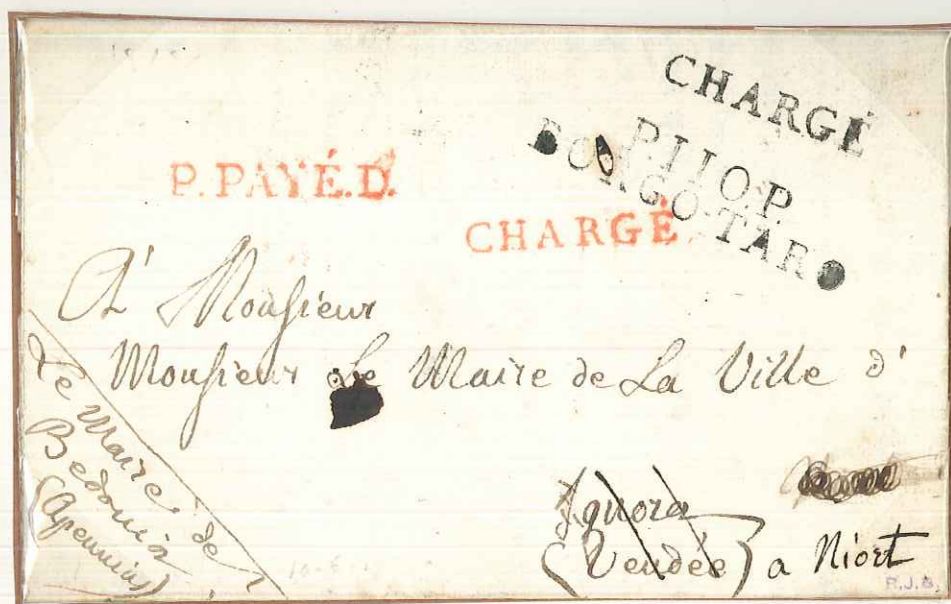 CHARGÉ
P.110.P.
BORGO-TARO
P.PAYÉ.D.
CHARGÉ
A' Monsieur
Monsieur Le Maire de La Ville d'
(Vendée) a Niort
Le Maire de
Bedonia
(Apennins)
R.J.B.